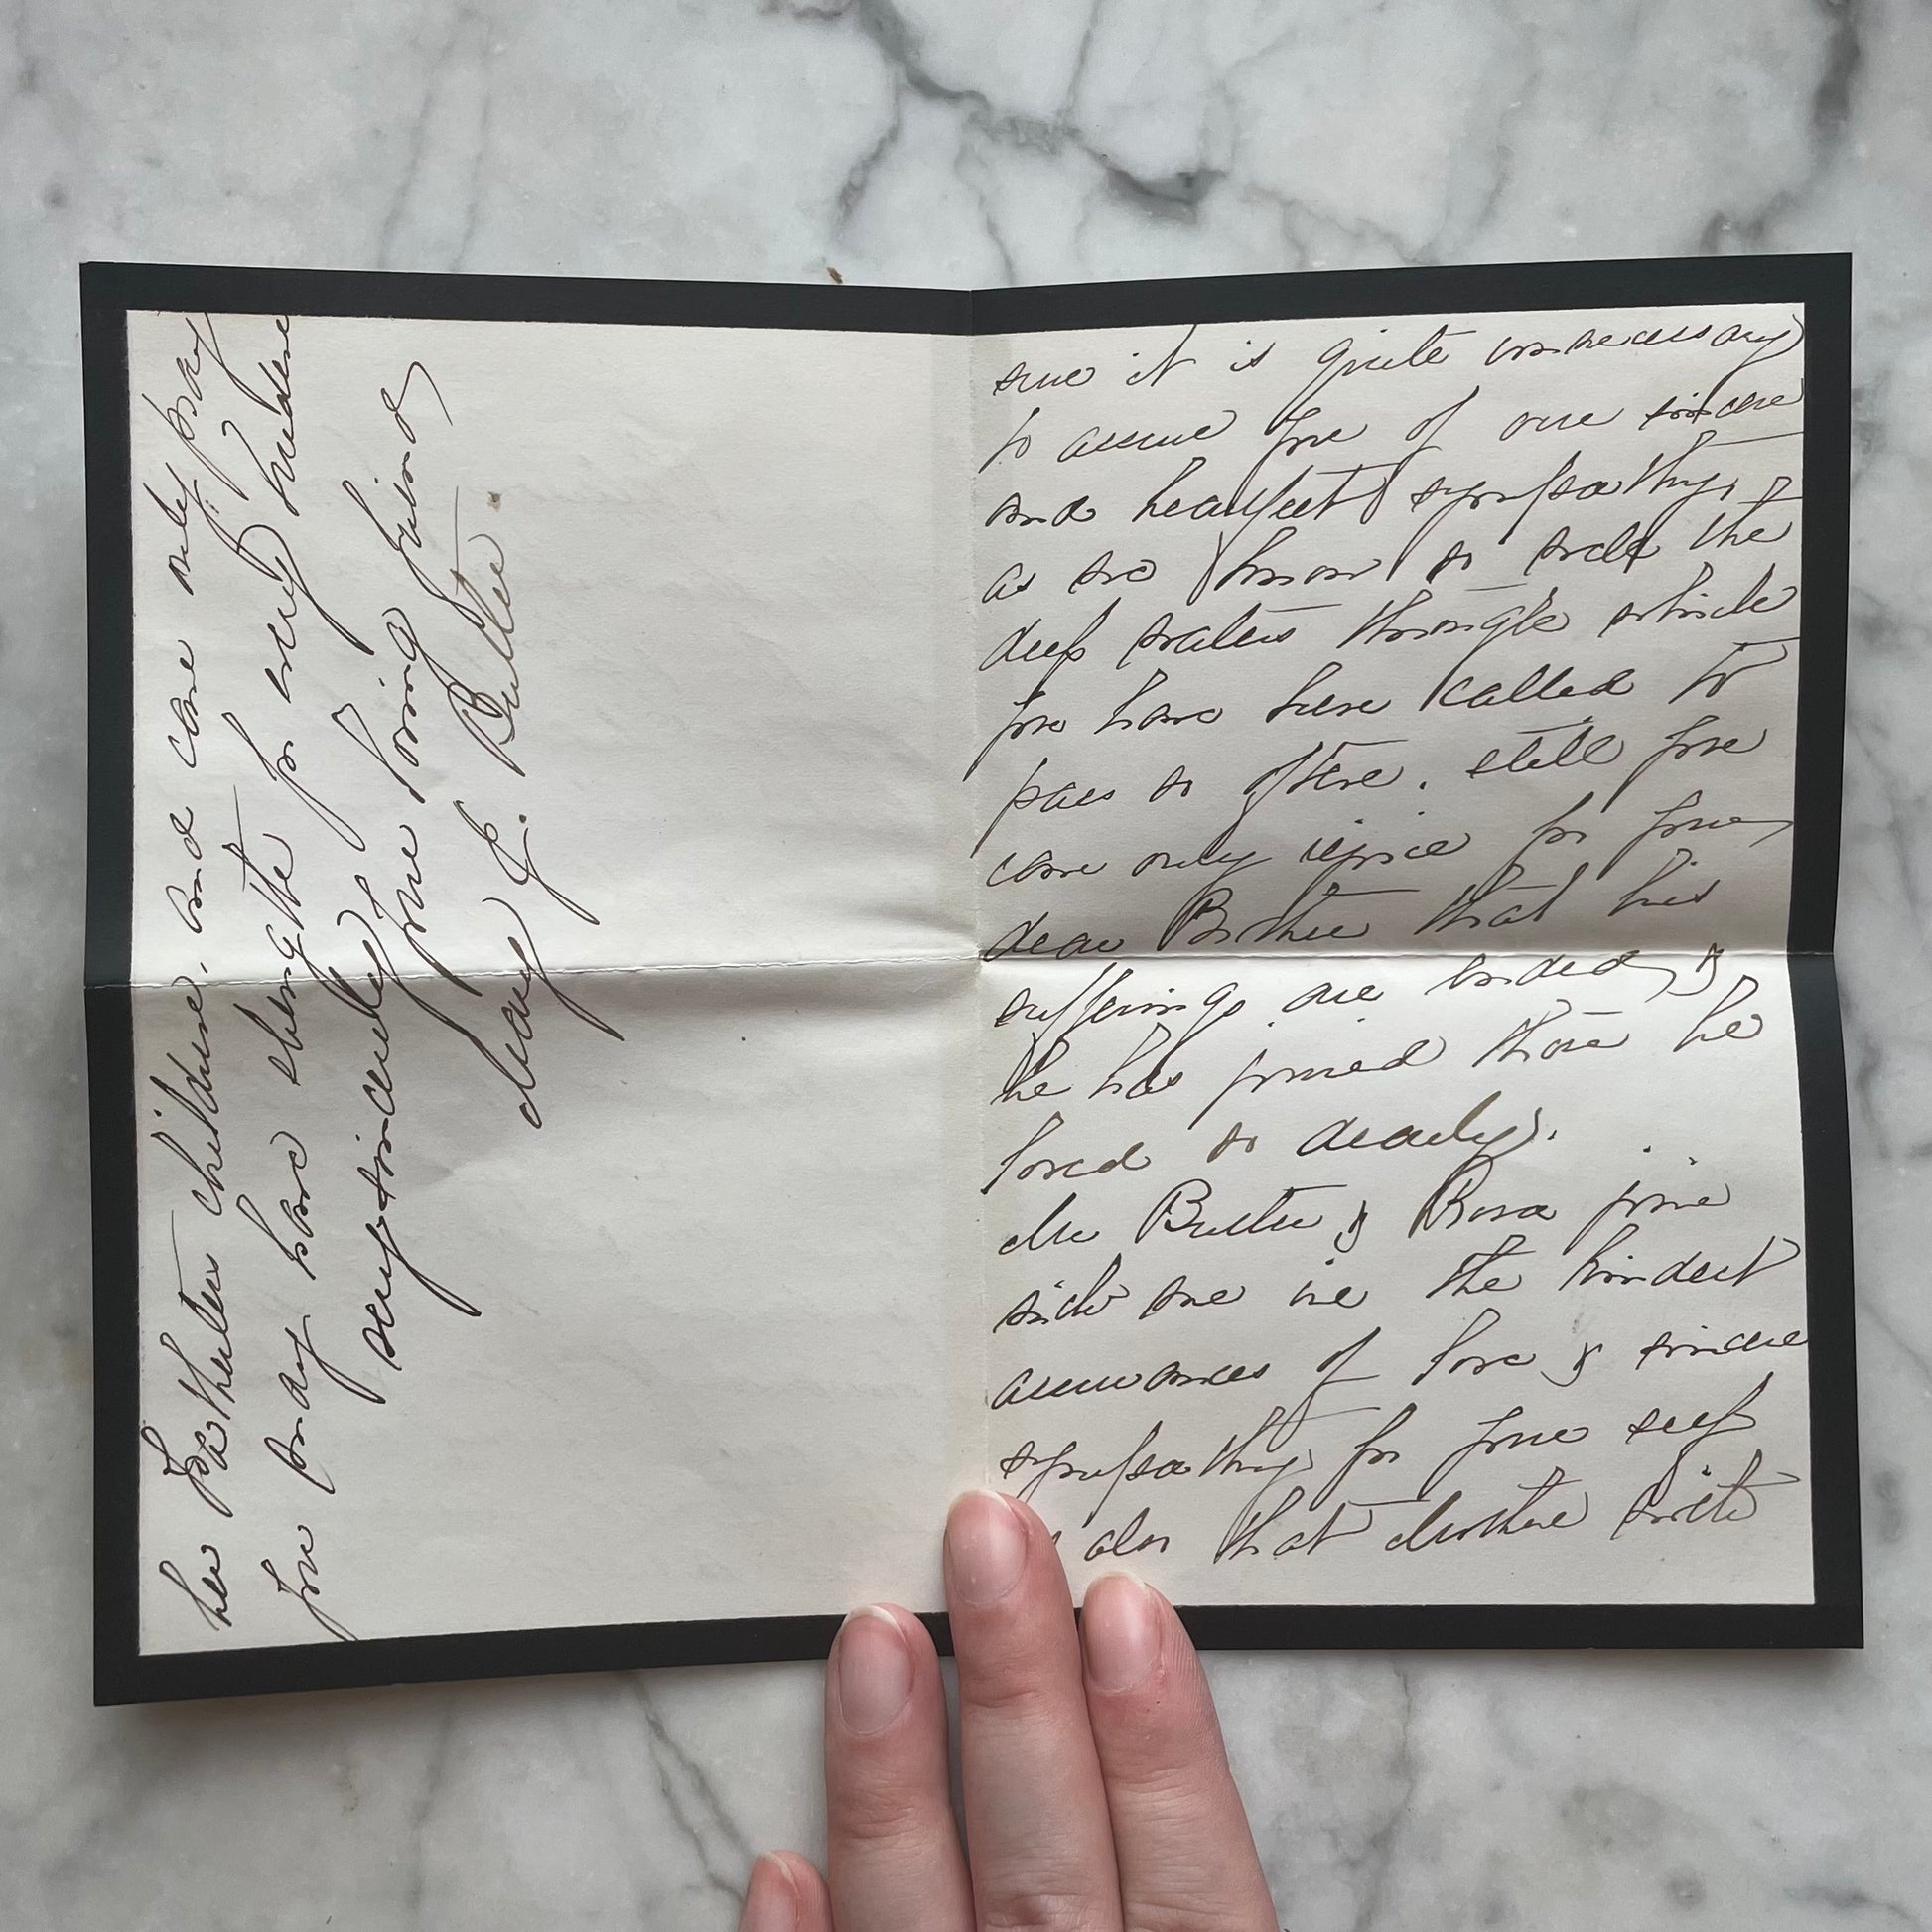 sure it is quite unnecessary
to assure you of our sincere
and heartfelt sympathy,
as we know so well the
deep waters through which
you have been called to
pass so often. still you
can only rejoice for your
dear Brother that his
sufferings are ended, &
he has joined those he
loved so dearly.
Mr Butler & Rosa join
with me in the kindest
assurances of love & sincere
sympathy for your self
also that Mother with
her Fatherless children, and can only pray
you may have strength for every burden
very sincerely your loving friend
Mary E. Butler